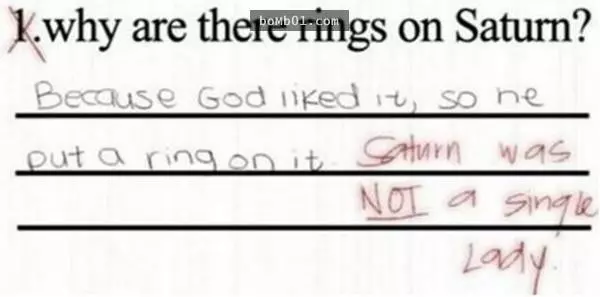 bomb01.com
1.why are there rings on Saturn?
Because God liked it, so he
put a ring on it. Saturn was
NOT a single
Lady.